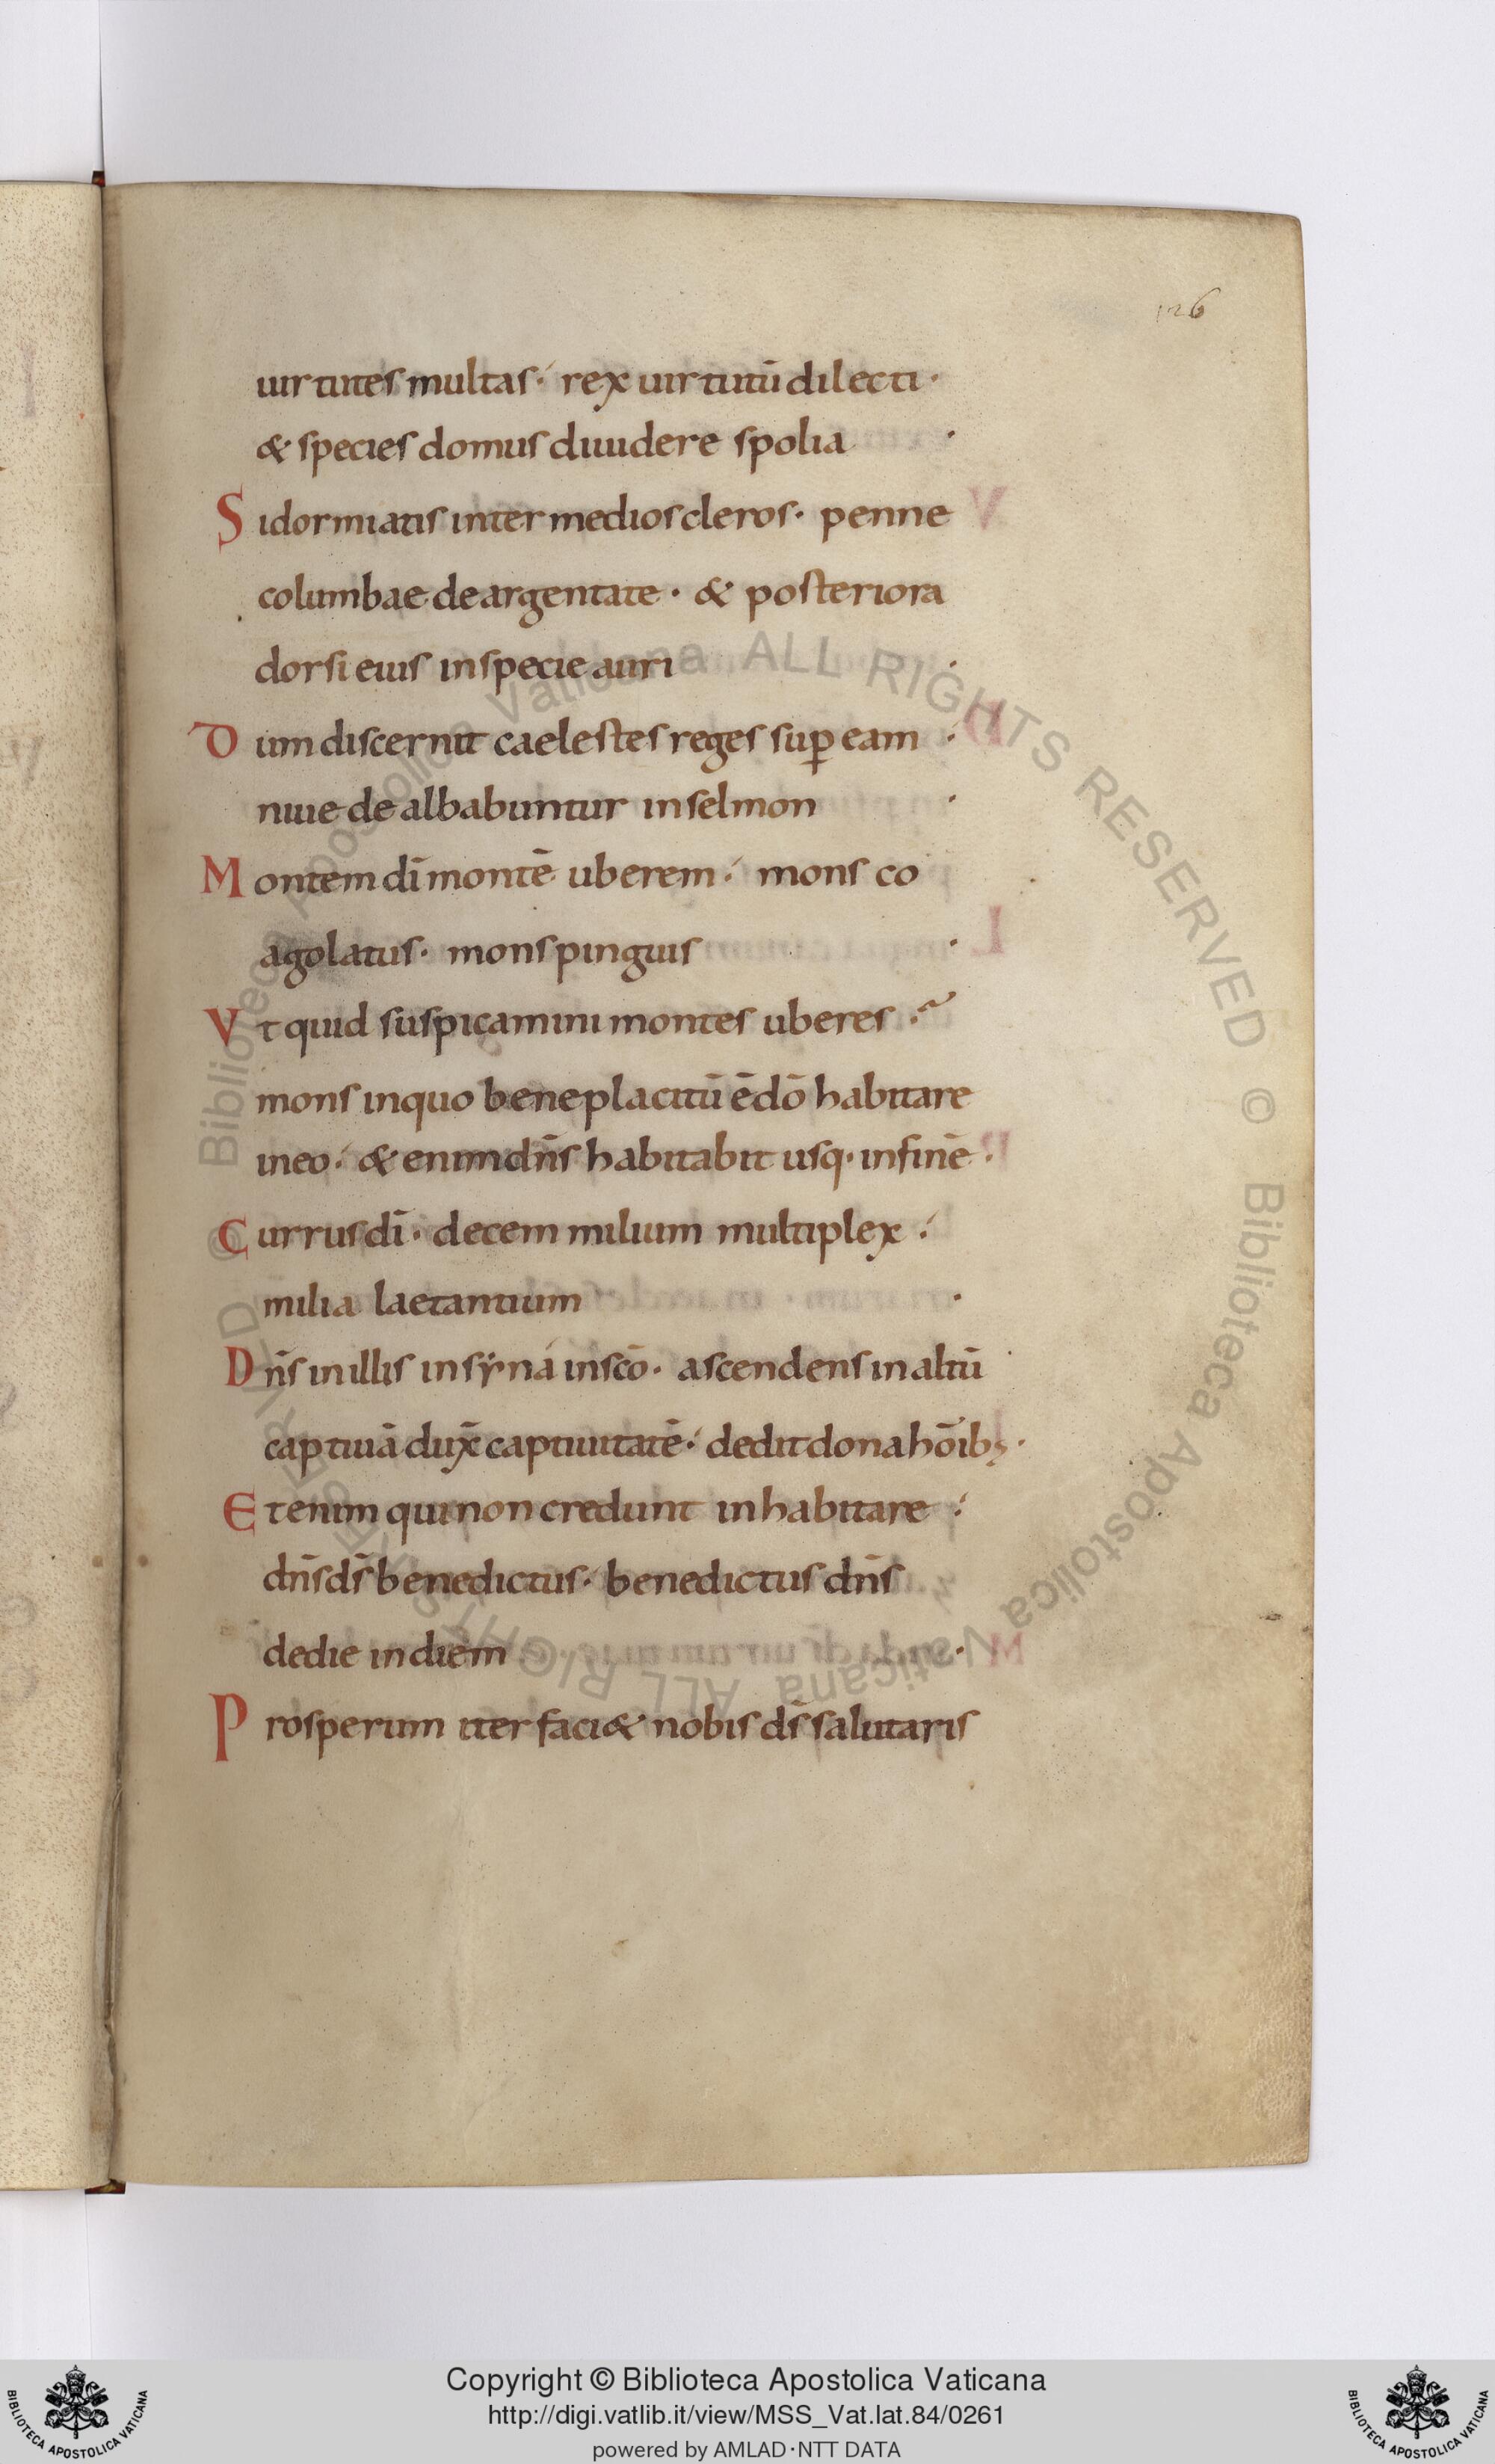 126
uirtutes multas· rex uirtutū dilecti·
& species domus diuidere spolia ·
Si dormiatis inter medios cleros· penne
columbae deargentate· & posteriora
dorsi eius in specie auri ·
Dum discernit caelestes reges sup̄ eam ·
niue dealbabuntur in selmon ·
Montem dī montē uberem· mons co
agolatus· mons pinguis ·
Vt quid suspicamini montes uberes·
mons in quo beneplacitū ē dō habitare
in eo· & enim dn̄s habitabit usq· in finē·
Currus dī· decem milium multiplex·
milia laetantium ·
Dn̄s in illis in syna in scō· ascendens in altū
captiuā dux̄ captiuitatē· dedit dona hōibꝫ·
Etenim qui non credunt inhabitare·
dn̄s ds̄ benedictus· benedictus dn̄s
de die in diem ·
Prosperum iter faci& nobis ds̄ salutaris
Biblioteca Apostolica Vaticana ALL RIGHTS RESERVED ©
Biblioteca Apostolica Vaticana ALL RIGHTS RESERVED ©
Copyright © Biblioteca Apostolica Vaticana
http://digi.vatlib.it/view/MSS_Vat.lat.84/0261
powered by AMLAD·NTT DATA
BIBLIOTECA APOSTOLICA VATICANA
BIBLIOTECA APOSTOLICA VATICANA